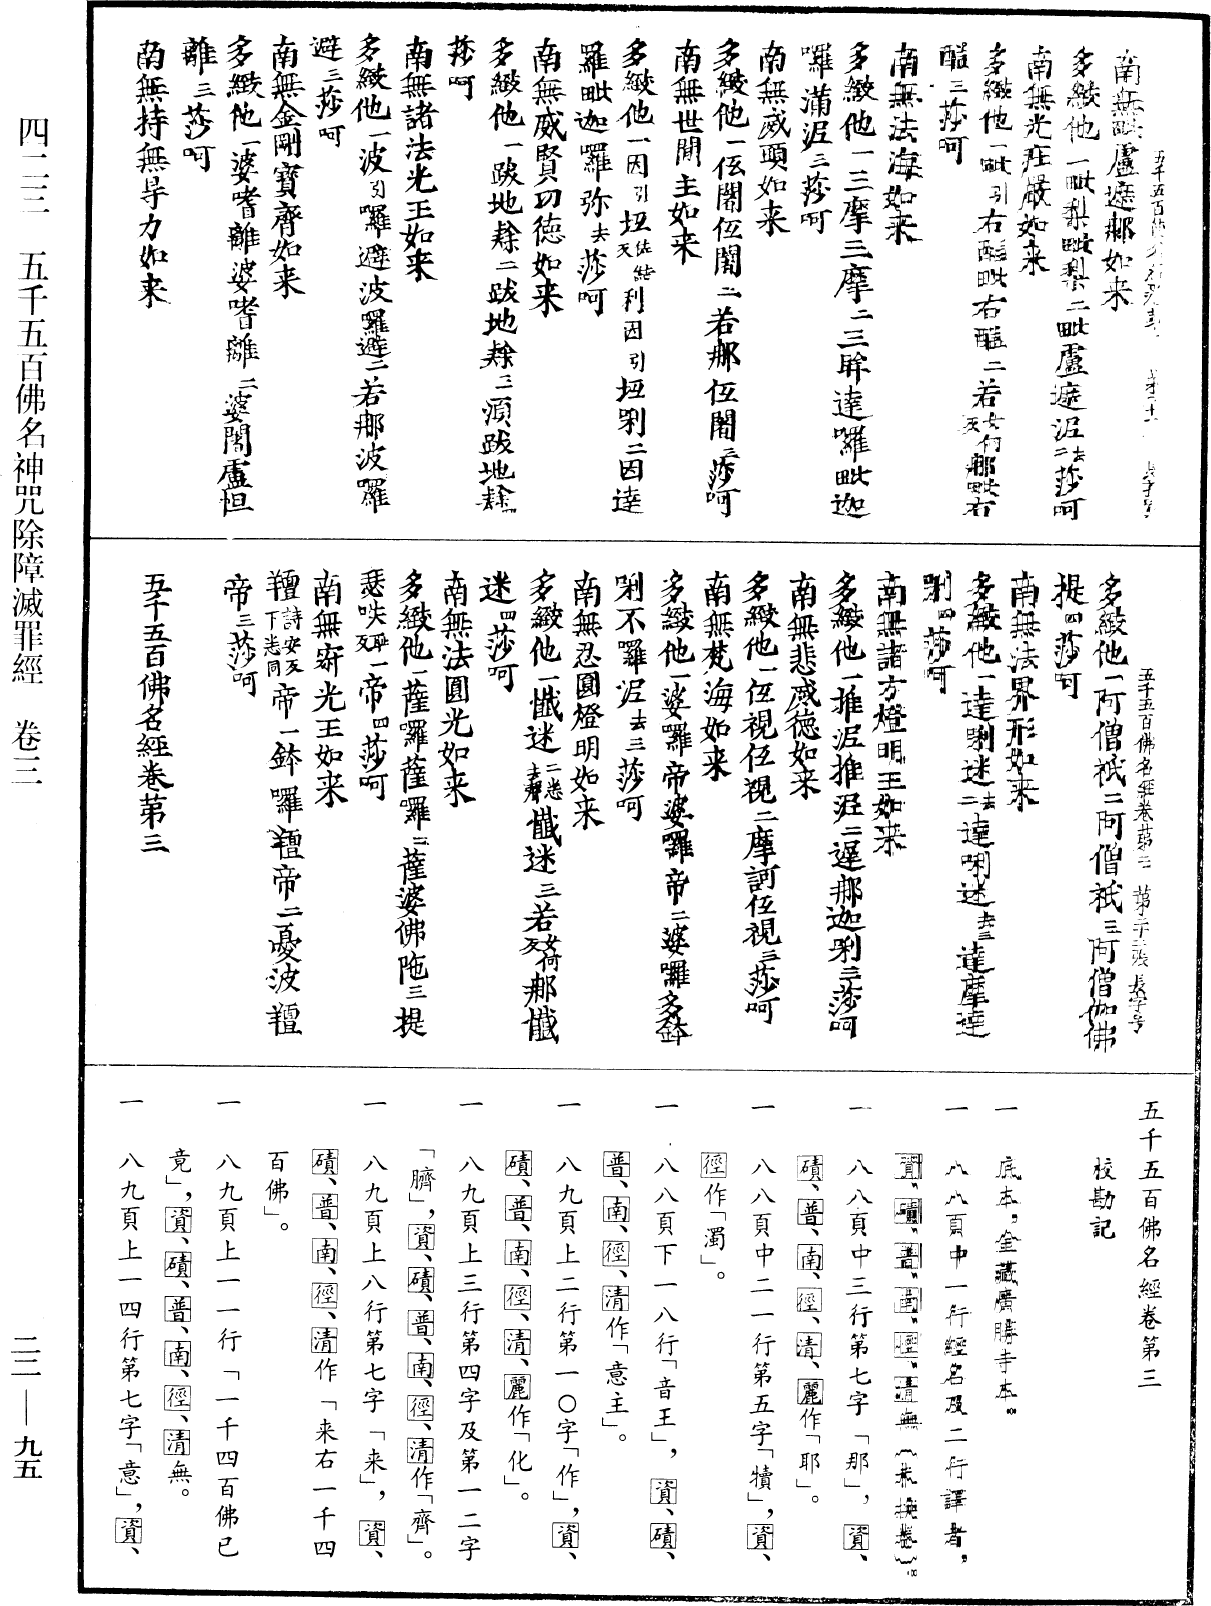 四二三　五千五百佛名神咒除障滅罪經　卷三
二二—九五
南無毗盧遮那如来
多緻他一毗梨毗梨二毗盧遮泥去二莎呵
南無光莊嚴如来
多緻他一毗引右醯毗右醯二若女何反那毗右
醯三莎呵
南無法海如来
多緻他一三摩三摩二三眸達羅毗迦
囉滿泥三莎呵
南無威頭如来
多緻他一伭闍伍闍二若那伍闍三莎呵
南無世間主如来
多緻他一因引坘佐結反利因引坘唎二因達
羅毗迦羅弥去莎呵
南無威賢功德如来
多緻他一跋地賒二跋地賒三湏跋地賒四
莎呵
南無諸法光王如来
多緻他一波引囉避波羅避二若那波羅
避三莎呵
南無金剛寶齊如来
多緻他一婆嗜離婆嗜離二婆闍盧怛
離三莎呵
南無持無㝵力如来
多緻他一阿僧祇二阿僧祇三阿僧伽佛
提四莎呵
南無法界形如来
多緻他一達唎迷去二達唎迷去三達摩達
唎四莎呵
南無諸方燈明王如来
多緻他一推泥推泥二遲那迦唎三莎呵
南無悲威德如来
多緻他一伍視伍視二摩訶伍視三莎呵
南無梵海如来
多緻他一婆羅帝婆羅帝二婆囉多鉢
唎不羅泥去三莎呵
南無忍圓燈明如来
多緻他一懺迷二悉去聲懺迷三若女何反那懺
迷四莎呵
南無法圓光如来
多緻他一薩羅薩羅二薩婆佛陁三提
瑟咥耻一反帝四莎呵
南無竒光王如来
羶詩安反下悉同帝一鉢囉羶帝二憂波羶
帝三莎呵
五千五百佛名經卷第三
五千五百佛名經卷第三
校勘記
一　底本，金藏廣勝寺本。
一　八八頁中一行經名及二行譯者，
資、磧、普、南、徑、清無（未換卷）。
一　八八頁中三行第七字「那」，資、
磧、普、南、徑、清、麗作「耶」。
一　八八頁中二一行第五字「犢」，資、
徑作「濁」。
一　八八頁下一八行「音王」，資、磧、
普、南、徑、清作「意主」。
一　八九頁上二行第一〇字「作」，資、
磧、普、南、徑、清、麗作「化」。
一　八九頁上三行第四字及第一二字
「臍」，資、磧、普、南、徑、清作「齊」。
一　八九頁上八行第七字「来」，資、
磧、普、南、徑、清作「来右一千四
百佛」。
一　八九頁上一一行「一千四百佛已
竟」，資、磧、普、南、徑、清無。
一　八九頁上一四行第七字「意」，資、